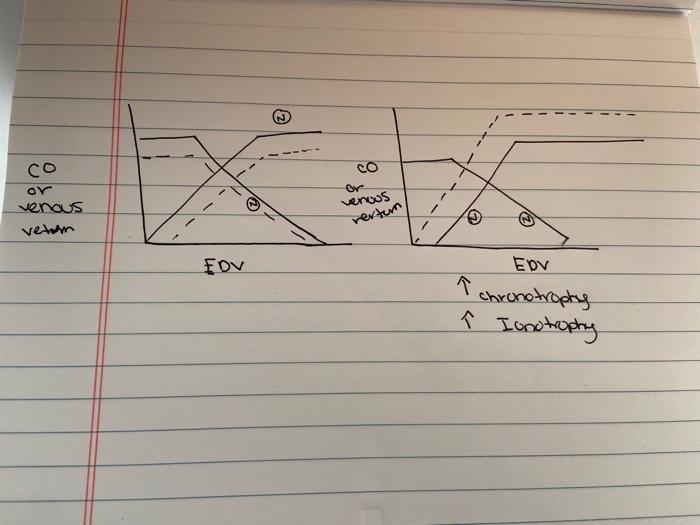 N
CO
or
venous
return
N
EDV
CO
or
venous
rerturn
N
N
EDV
↑ chronotrophy
↑ Ionotrophy